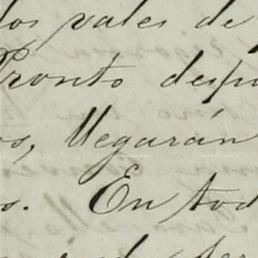 los vales de
Pronto despu
os, llegarán
s. En tod